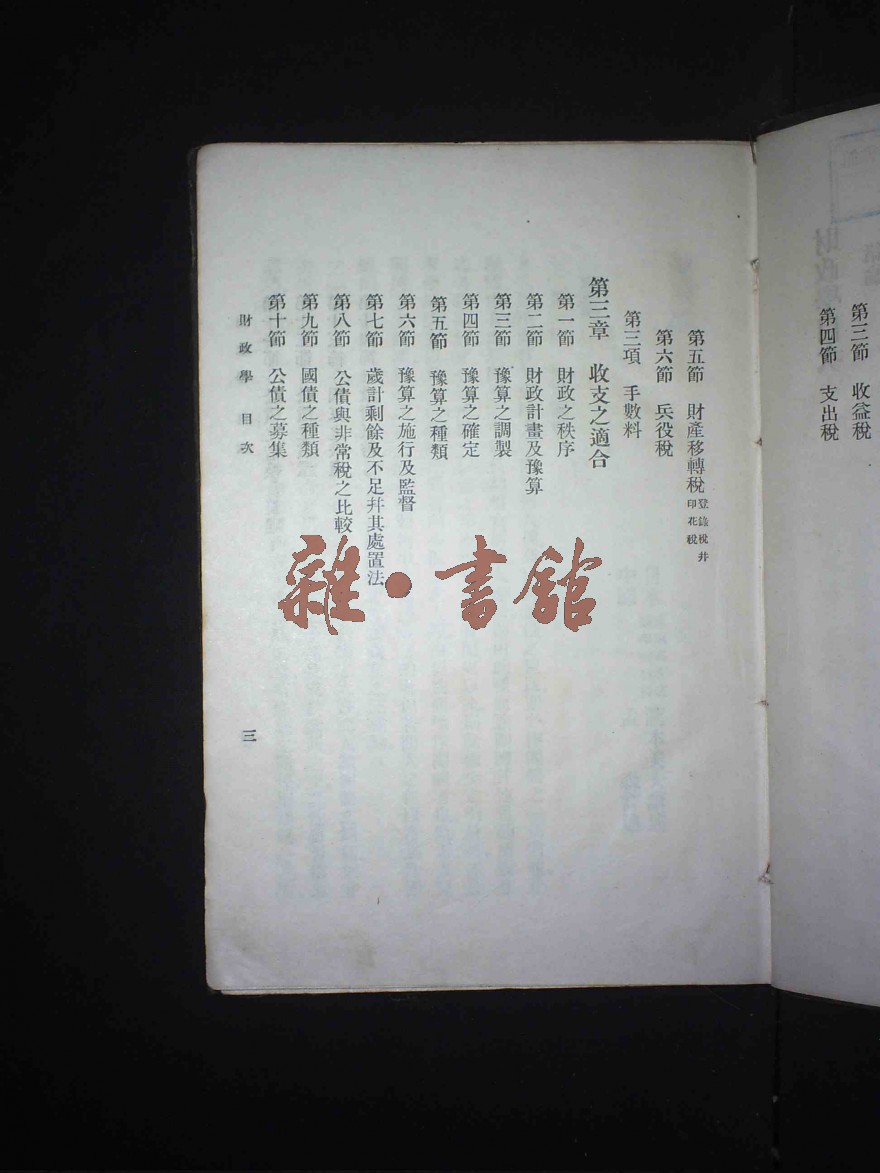 第三節　收益稅
第四節　支出稅
第五節　財產移轉稅登錄稅幷印花稅
第六節　兵役稅
第三項　手數料
第三章　收支之適合
第一節　財政之秩序
第二節　財政計畫及豫算
第三節　豫算之調製
第四節　豫算之確定
第五節　豫算之種類
第六節　豫算之施行及監督
第七節　歲計剩餘及不足幷其處置法
第八節　公債與非常稅之比較
第九節　國債之種類
第十節　公債之募集
財政學　目次
三
雜·書館